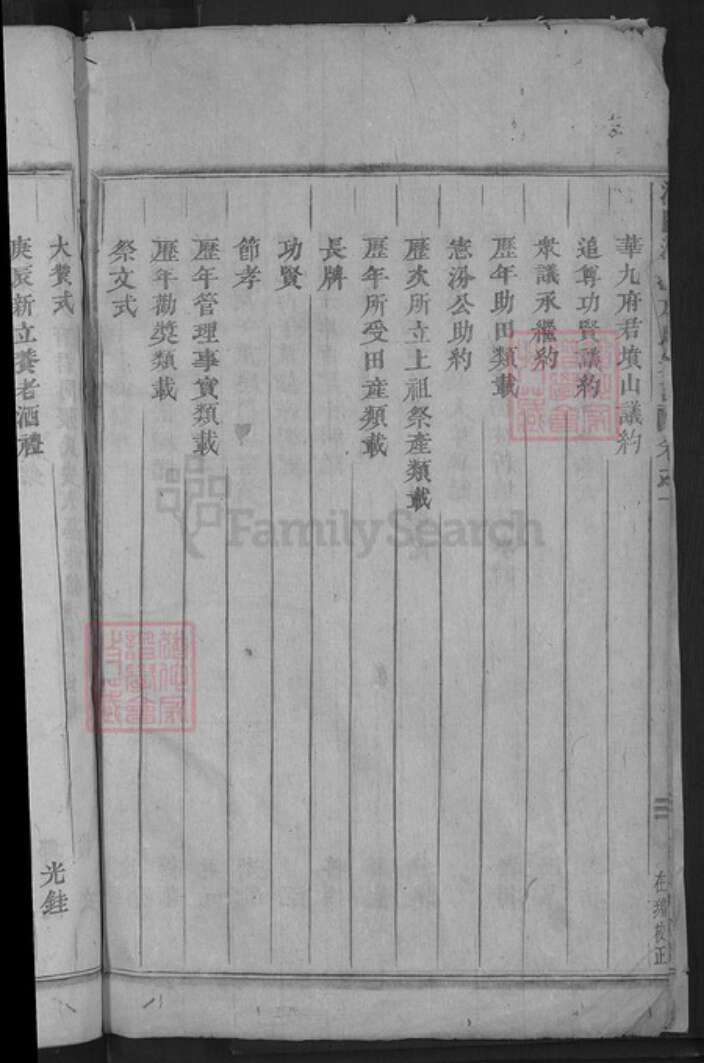 華九府君墳山議約
追尊功賢議約
衆議承繼約
歷年助田類載
憲汾公助約
歷次所立上祖祭產類載
歷年所受田產類載
長牌
功賢
節孝
歷年管理事實類載
歷年勸獎類載
祭文式
大贊式
庚辰新立養老酒禮
光銈
三
校正
FamilySearch